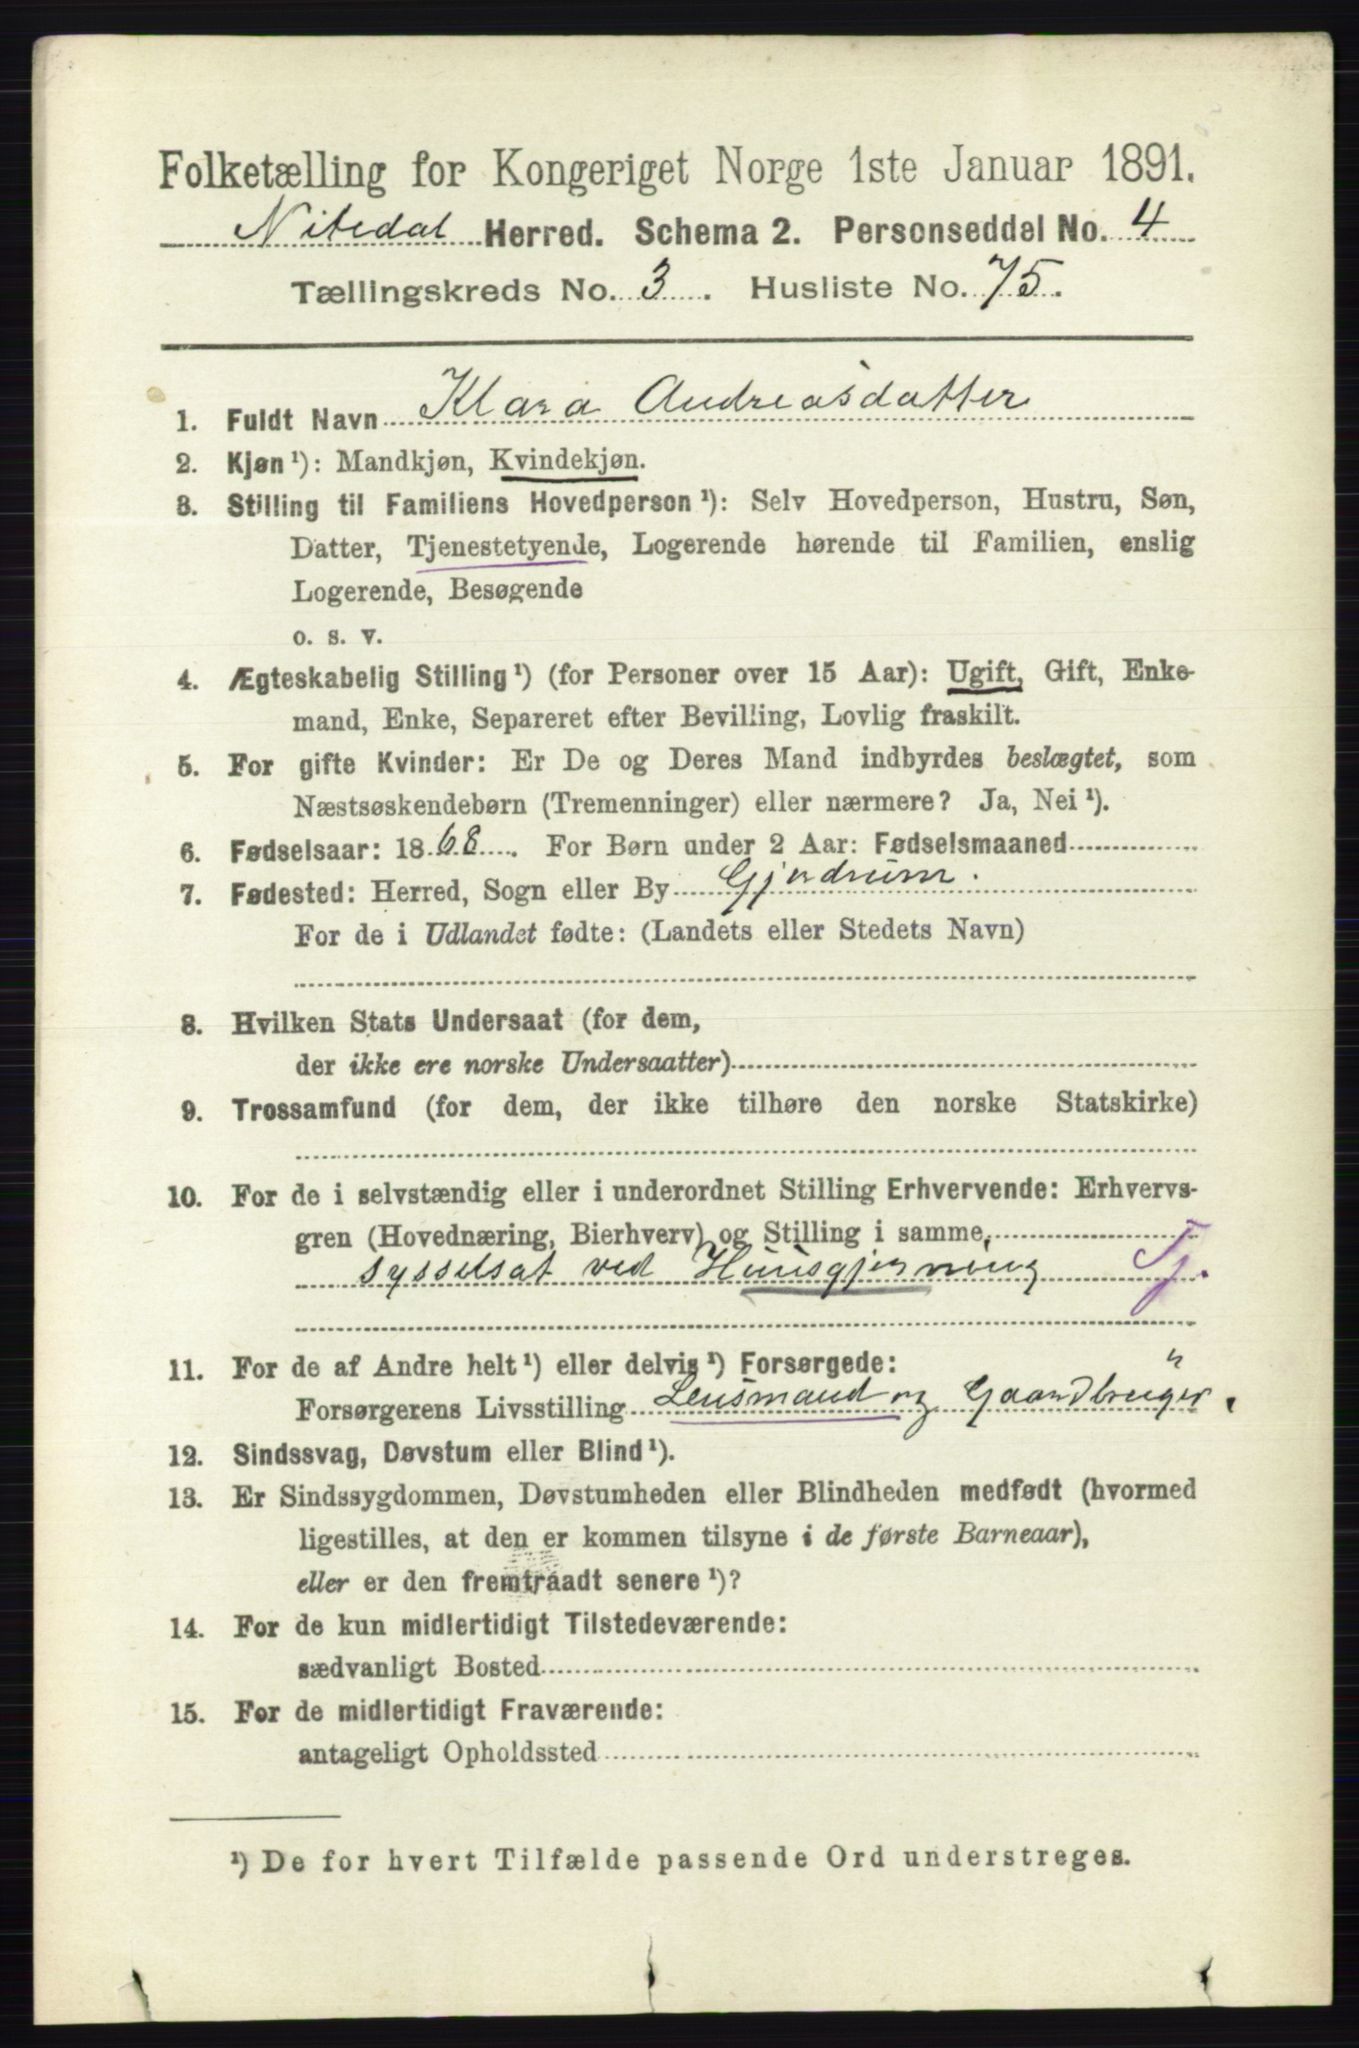 Folketælling for Kongeriget Norge 1ste Januar 1891.
Nitedal Herred. Schema 2. Personseddel No. 4
Tællingskreds No. 3. Husliste No. 75.
1. Fuldt Navn Klara Andreasdatter
2. Kjøn ¹): Mandkjøn, Kvindekjøn.
3. Stilling til Familiens Hovedperson ¹): Selv Hovedperson, Hustru, Søn,
Datter, Tjenestetyende, Logerende hørende til Familien, enslig
Logerende, Besøgende
o. s. v.
4. Ægteskabelig Stilling ¹) (for Personer over 15 Aar): Ugift, Gift, Enke-
mand, Enke, Separeret efter Bevilling, Lovlig fraskilt.
5. For gifte Kvinder: Er De og Deres Mand indbyrdes beslægtet, som
Næstsøskendebørn (Tremenninger) eller nærmere? Ja, Nei ¹).
6. Fødselsaar: 1868. For Børn under 2 Aar: Fødselsmaaned
7. Fødested: Herred, Sogn eller By Gjerdrum.
For de i Udlandet fødte: (Landets eller Stedets Navn)
8. Hvilken Stats Undersaat (for dem,
der ikke ere norske Undersaatter)
9. Trossamfund (for dem, der ikke tilhøre den norske Statskirke)
10. For de i selvstændig eller i underordnet Stilling Erhvervende: Erhvervs-
gren (Hovednæring, Bierhverv) og Stilling i samme,
sysselsat ved Huusgjerning Tj.
11. For de af Andre helt ¹) eller delvis ¹) Forsørgede: "
Forsørgerens Livsstilling Lensmand og Gaardbruger.
12. Sindssvag, Døvstum eller Blind ¹).
13. Er Sindssygdommen, Døvstumheden eller Blindheden medfødt (hvormed
ligestilles, at den er kommen tilsyne i de første Barneaar),
eller er den fremtraadt senere ¹)?
14. For de kun midlertidigt Tilstedeværende:
sædvanligt Bosted
15. For de midlertidigt Fraværende:
antageligt Opholdssted
¹) De for hvert Tilfælde passende Ord understreges.